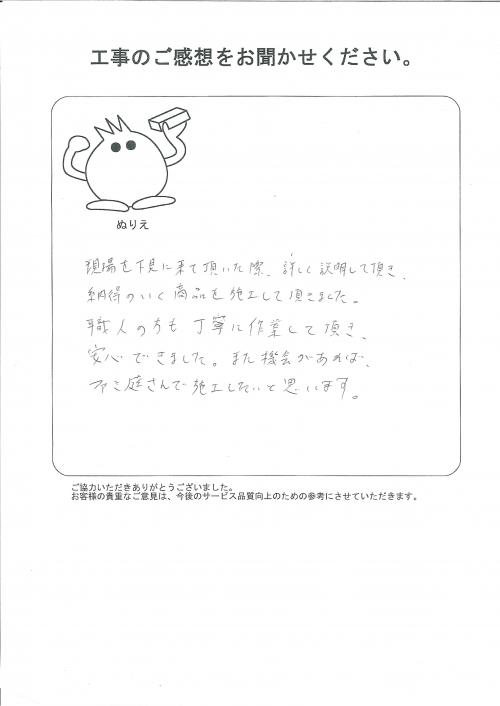 工事のご感想をお聞かせください。
ぬりえ
現場を下見に来て頂いた際、詳しく説明して頂き、
納得のいく商品を施工して頂きました。
職人の方も丁寧に作業して頂き、
安心できました。また機会があれば、
ファミ庭さんで施工したいと思います。
ご協力いただきありがとうございました。
お客様の貴重なご意見は、今後のサービス品質向上のための参考にさせていただきます。